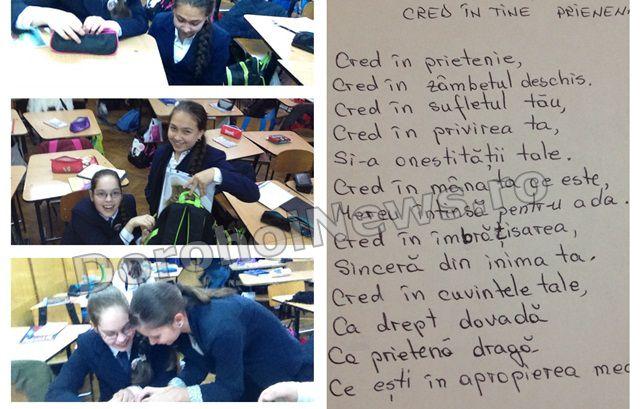 CRED ÎN TINE PRIETEN
Cred în prietenie,
Cred în zâmbetul deschis.
Cred în sufletul tău,
Cred în privirea ta,
Si-a onestității tale.
Cred în mâna ta ce este,
Mereu întinsă pentru a da.
Cred în îmbrățisarea,
Sinceră din inima ta.
Cred în cuvintele tale,
Ca drept dovadă
Ca prietenă dragă
Ce ești în apropierea mea
DorohoiNews.ro